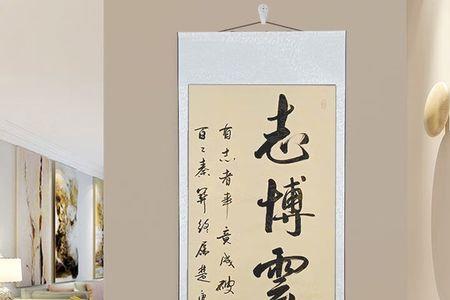 志博雲
有志者事竟成破
百二秦關終属楚